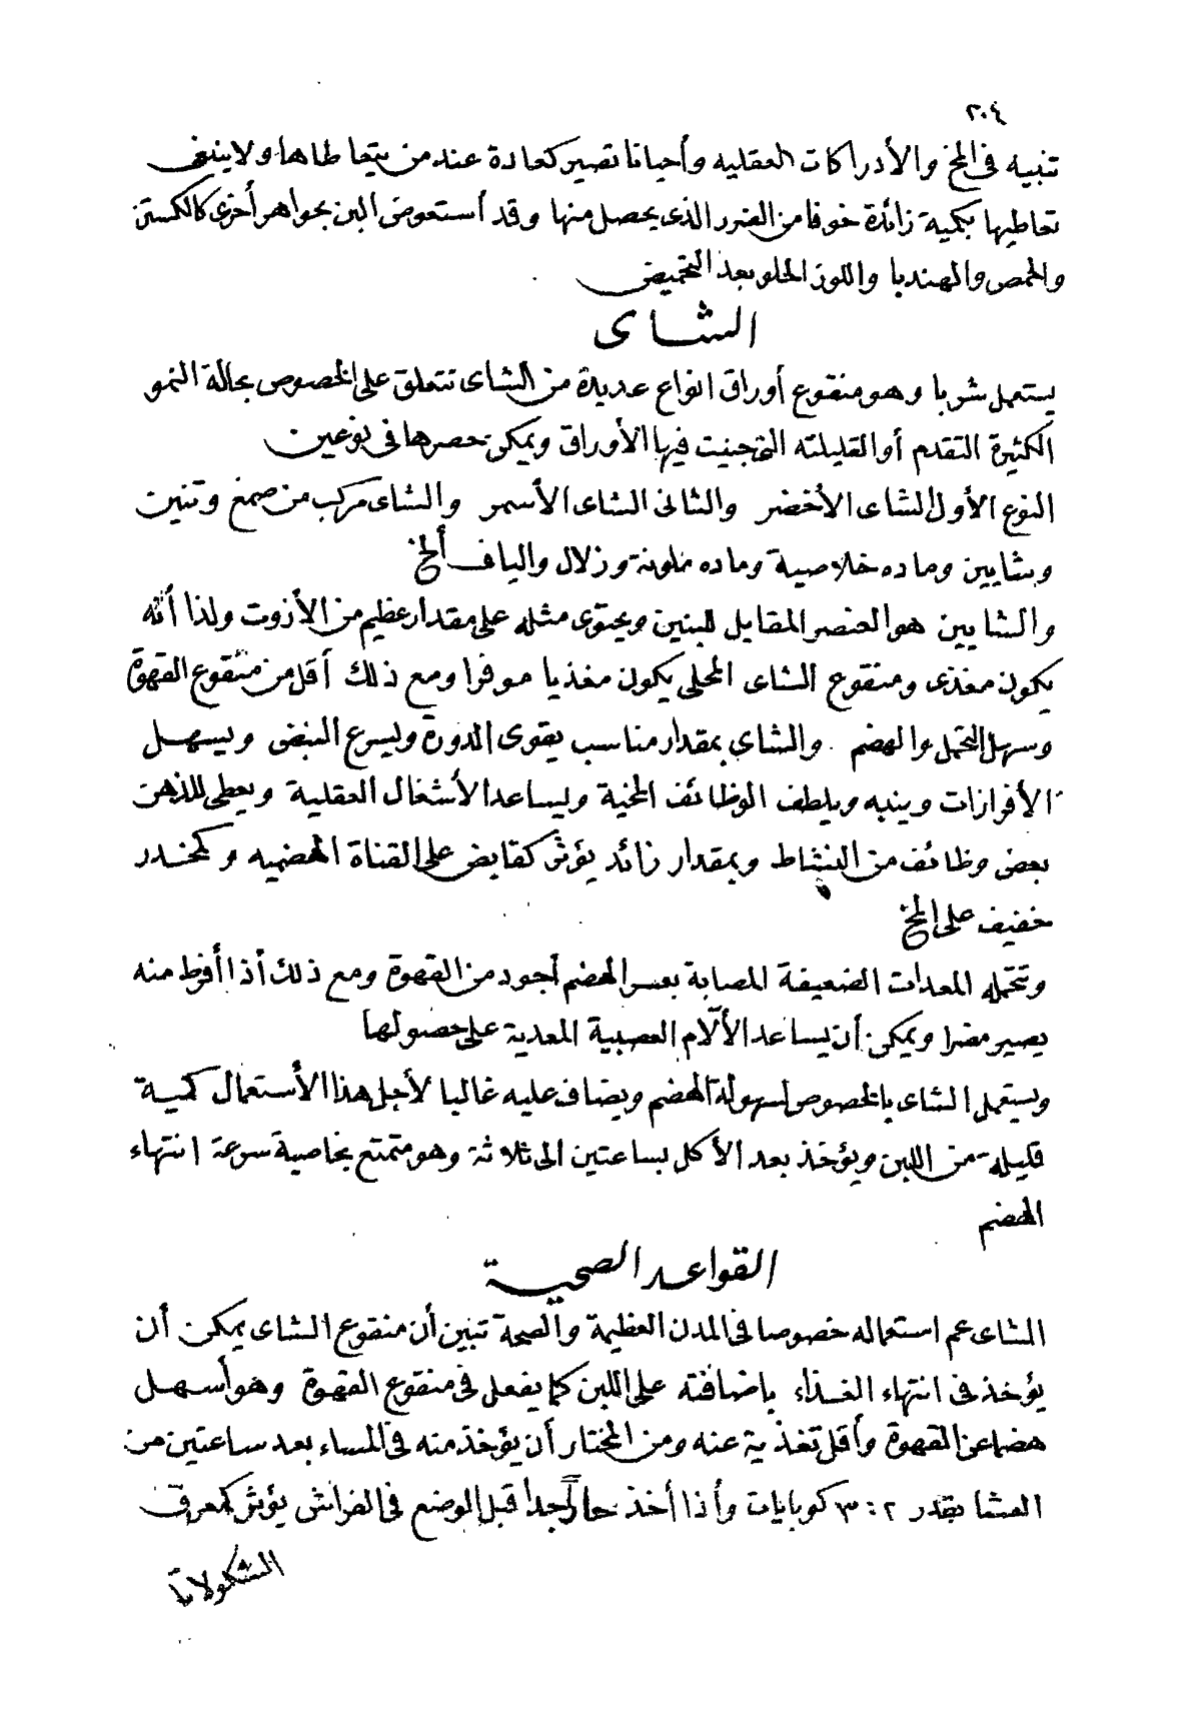 ٢٠٤
تنبيه فى المخ والأدراكات العقليه وأحيانا تصير كعادة عند من يتعاطاها ولا ينبغى
تعاطيها بكمية زائدة خوفا من الضرر الذى يحصل منها وقد أستعوض البن بجواهر أخرى كالكستن
والحمص والهندبا واللوز الحلو بعد التحميض
الشاى
يستعمل شربا وهو منقوع أوراق انواع عديدة من الشاى تتعلق على الخصوص بحالة النمو
الكثيرة التقدم أو القليلته التى جنيت فيها الأوراق ويمكن حصرها فى نوعين
النوع الأول الشاى الأخضر والثانى الشاى الأسمر والشاى مركب من صمغ وتنين
وشايين وماده خلاصية وماده ملونة وزلال والياف ألخ
والشايين هو العنصر المقابل للبنين ويحتوى مثله على مقدار عظيم من الأزوت ولذا أنه
يكون مغذى ومنقوع الشاى المحلى يكون مغذيا موفرا ومع ذلك أقل من منقوع القهوة
وسهل التحمل والهضم . والشاى بمقدار مناسب يقوى الدورة ويسرع النبض ويسهل
الأفرازات وينبه ويلطف الوظائف المخية ويساعد الأشغال العقلية ويعطى للذهن
بعض وظائف من النشاط وبمقدار زائد يؤثر كقابض على القناة الهضميه وكمخدر
خفيف على المخ
وتتحمله المعدات الضعيفة المصابة بعسر الهضم أجود من القهوة ومع ذلك أذا أفرط منه
يصير مضرا ويمكن أن يساعد الألآم العصبية المعدية على حصولها
ويستعمل الشاى بالخصوص لسهولة الهضم ويضاف عليه غالبا لأجل هذا الأستعمال كمية
قليله من اللبن ويؤخذ بعد الأكل بساعتين الى ثلاثة وهو متمتع بخاصية سرعة انتهاء
الهضم
القواعد الصحية
الشاى عم استعماله خصوصا فى المدن العظيمة والصحة تبين أن منقوع الشاى يمكن أن
يؤخذ فى انتهاء الغذاء باضافته على اللبن كما يفعل فى منقوع القهوة وهو أسهل
هضما عن القهوة وأقل تغذية عنه ومن المختار أن يؤخذ منه فى المساء بعد ساعتين من
العشا بقدر ٢ : ٣ كوبايات وأذا أخذ حارا جدا قبل الوضع فى الفراش يؤثر كمعرق
الشكولاتا